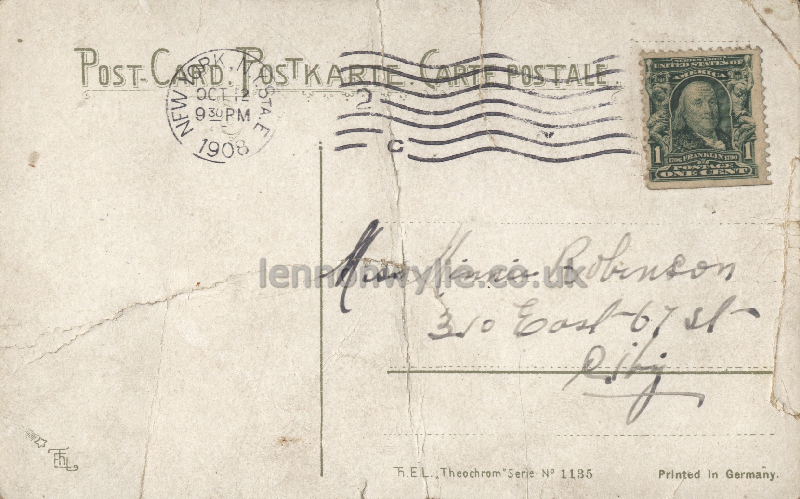 POST-CARD. POSTKARTE. CARTE POSTALE.
NEW YORK, N.Y. STA. E
OCT 12
9 30 PM
1908
2
C
SERIES 1902
UNITED STATES OF
AMERICA
1 FRANKLIN 1
POSTAGE
ONE CENT
lennonwylie.co.uk
Miss Minnie Robinson
310 East 67 st
City
Th.E.L. „Theochrom" Serie No 1135
Printed in Germany.